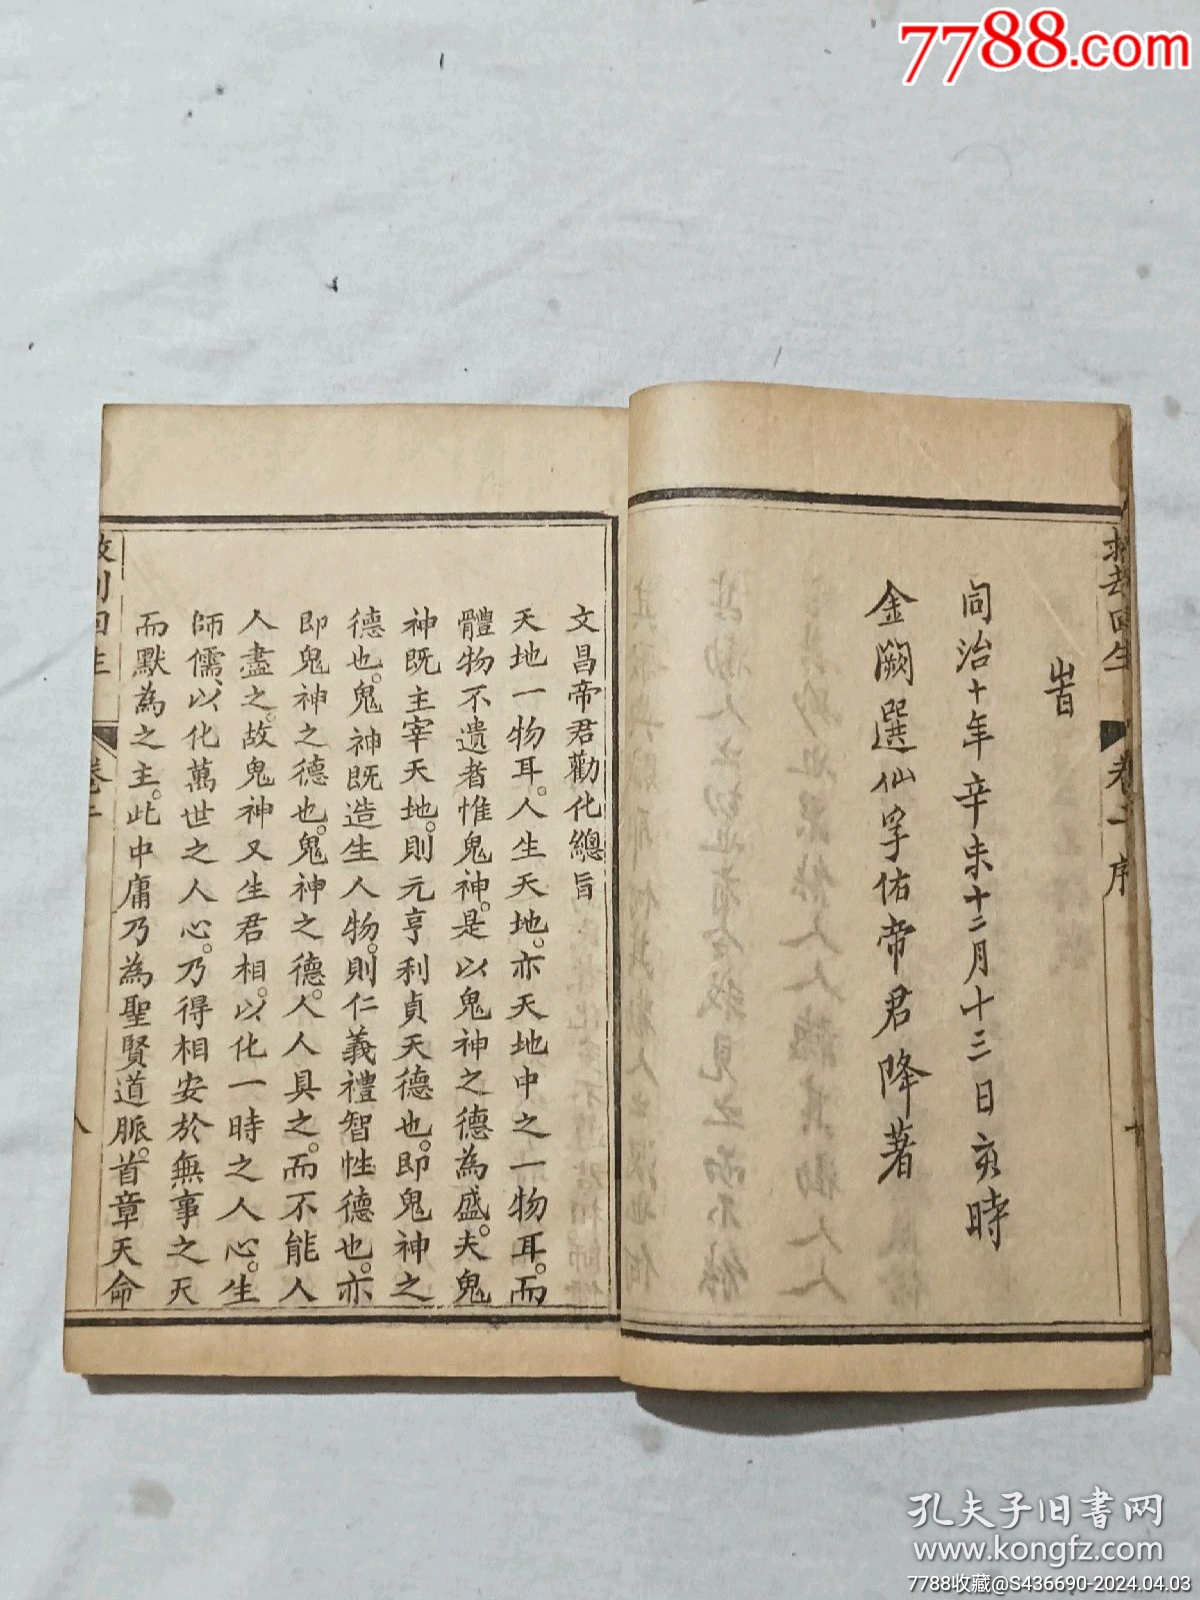 7788.com
救劫回生
卷一序
旹
同治十年辛未十二月十三日亥時
金闕選仙孚佑帝君降著
文昌帝君勸化總旨
天地一物耳。人生天地。亦天地中之一物耳。而
體物不遺者惟鬼神。是以鬼神之德為盛。夫鬼
神既主宰天地。則元亨利貞天德也。即鬼神之
德也。鬼神既造生人物。則仁義禮智性德也。亦
即鬼神之德也。鬼神之德。人人具之。而不能人
人盡之。故鬼神又生君相。以化一時之人心。生
師儒、以化萬世之人心。乃得相安於無事之天
而默為之主。此中庸乃為聖賢道脈。首章天命
回生
八
孔夫子旧書网
www.kongfz.com
7788收藏@S436690-2024.04.03